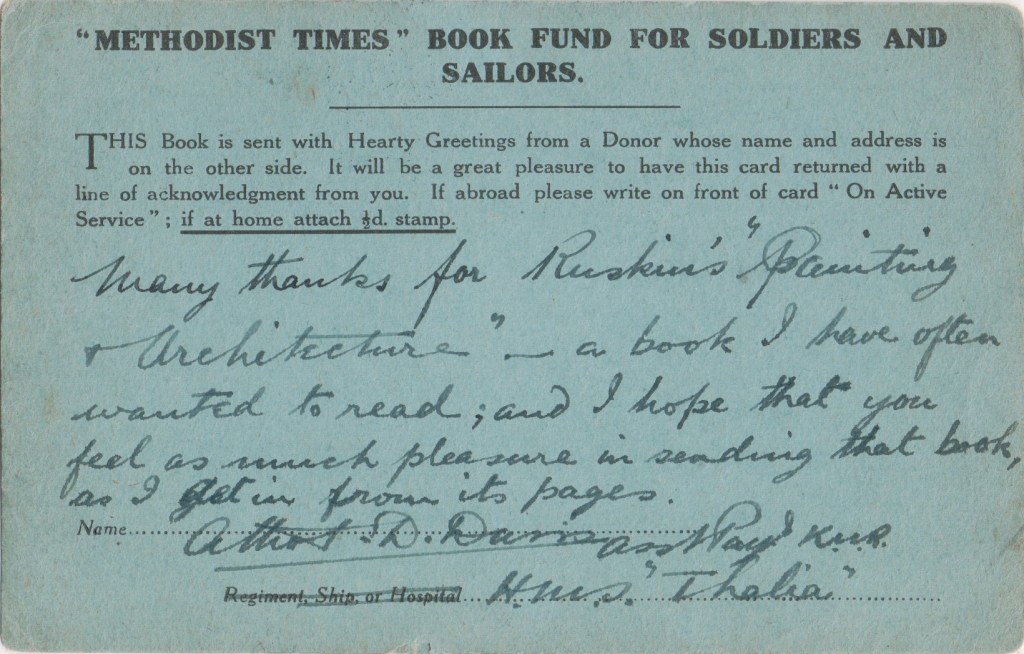 "METHODIST TIMES" BOOK FUND FOR SOLDIERS AND
SAILORS.
THIS Book is sent with Hearty Greetings from a Donor whose name and address is
on the other side. It will be a great pleasure to have this card returned with a
line of acknowledgment from you. If abroad please write on front of card "On Active
Service"; if at home attach ½d. stamp.
Many thanks for Ruskin's "Painting
& Architecture" – a book I have often
wanted to read; and I hope that you
feel as much pleasure in sending that book,
as I get in from its pages.
Name D. Davis Asst Pay
Regiment, Ship, or Hospital H.M.S. "Thalia"